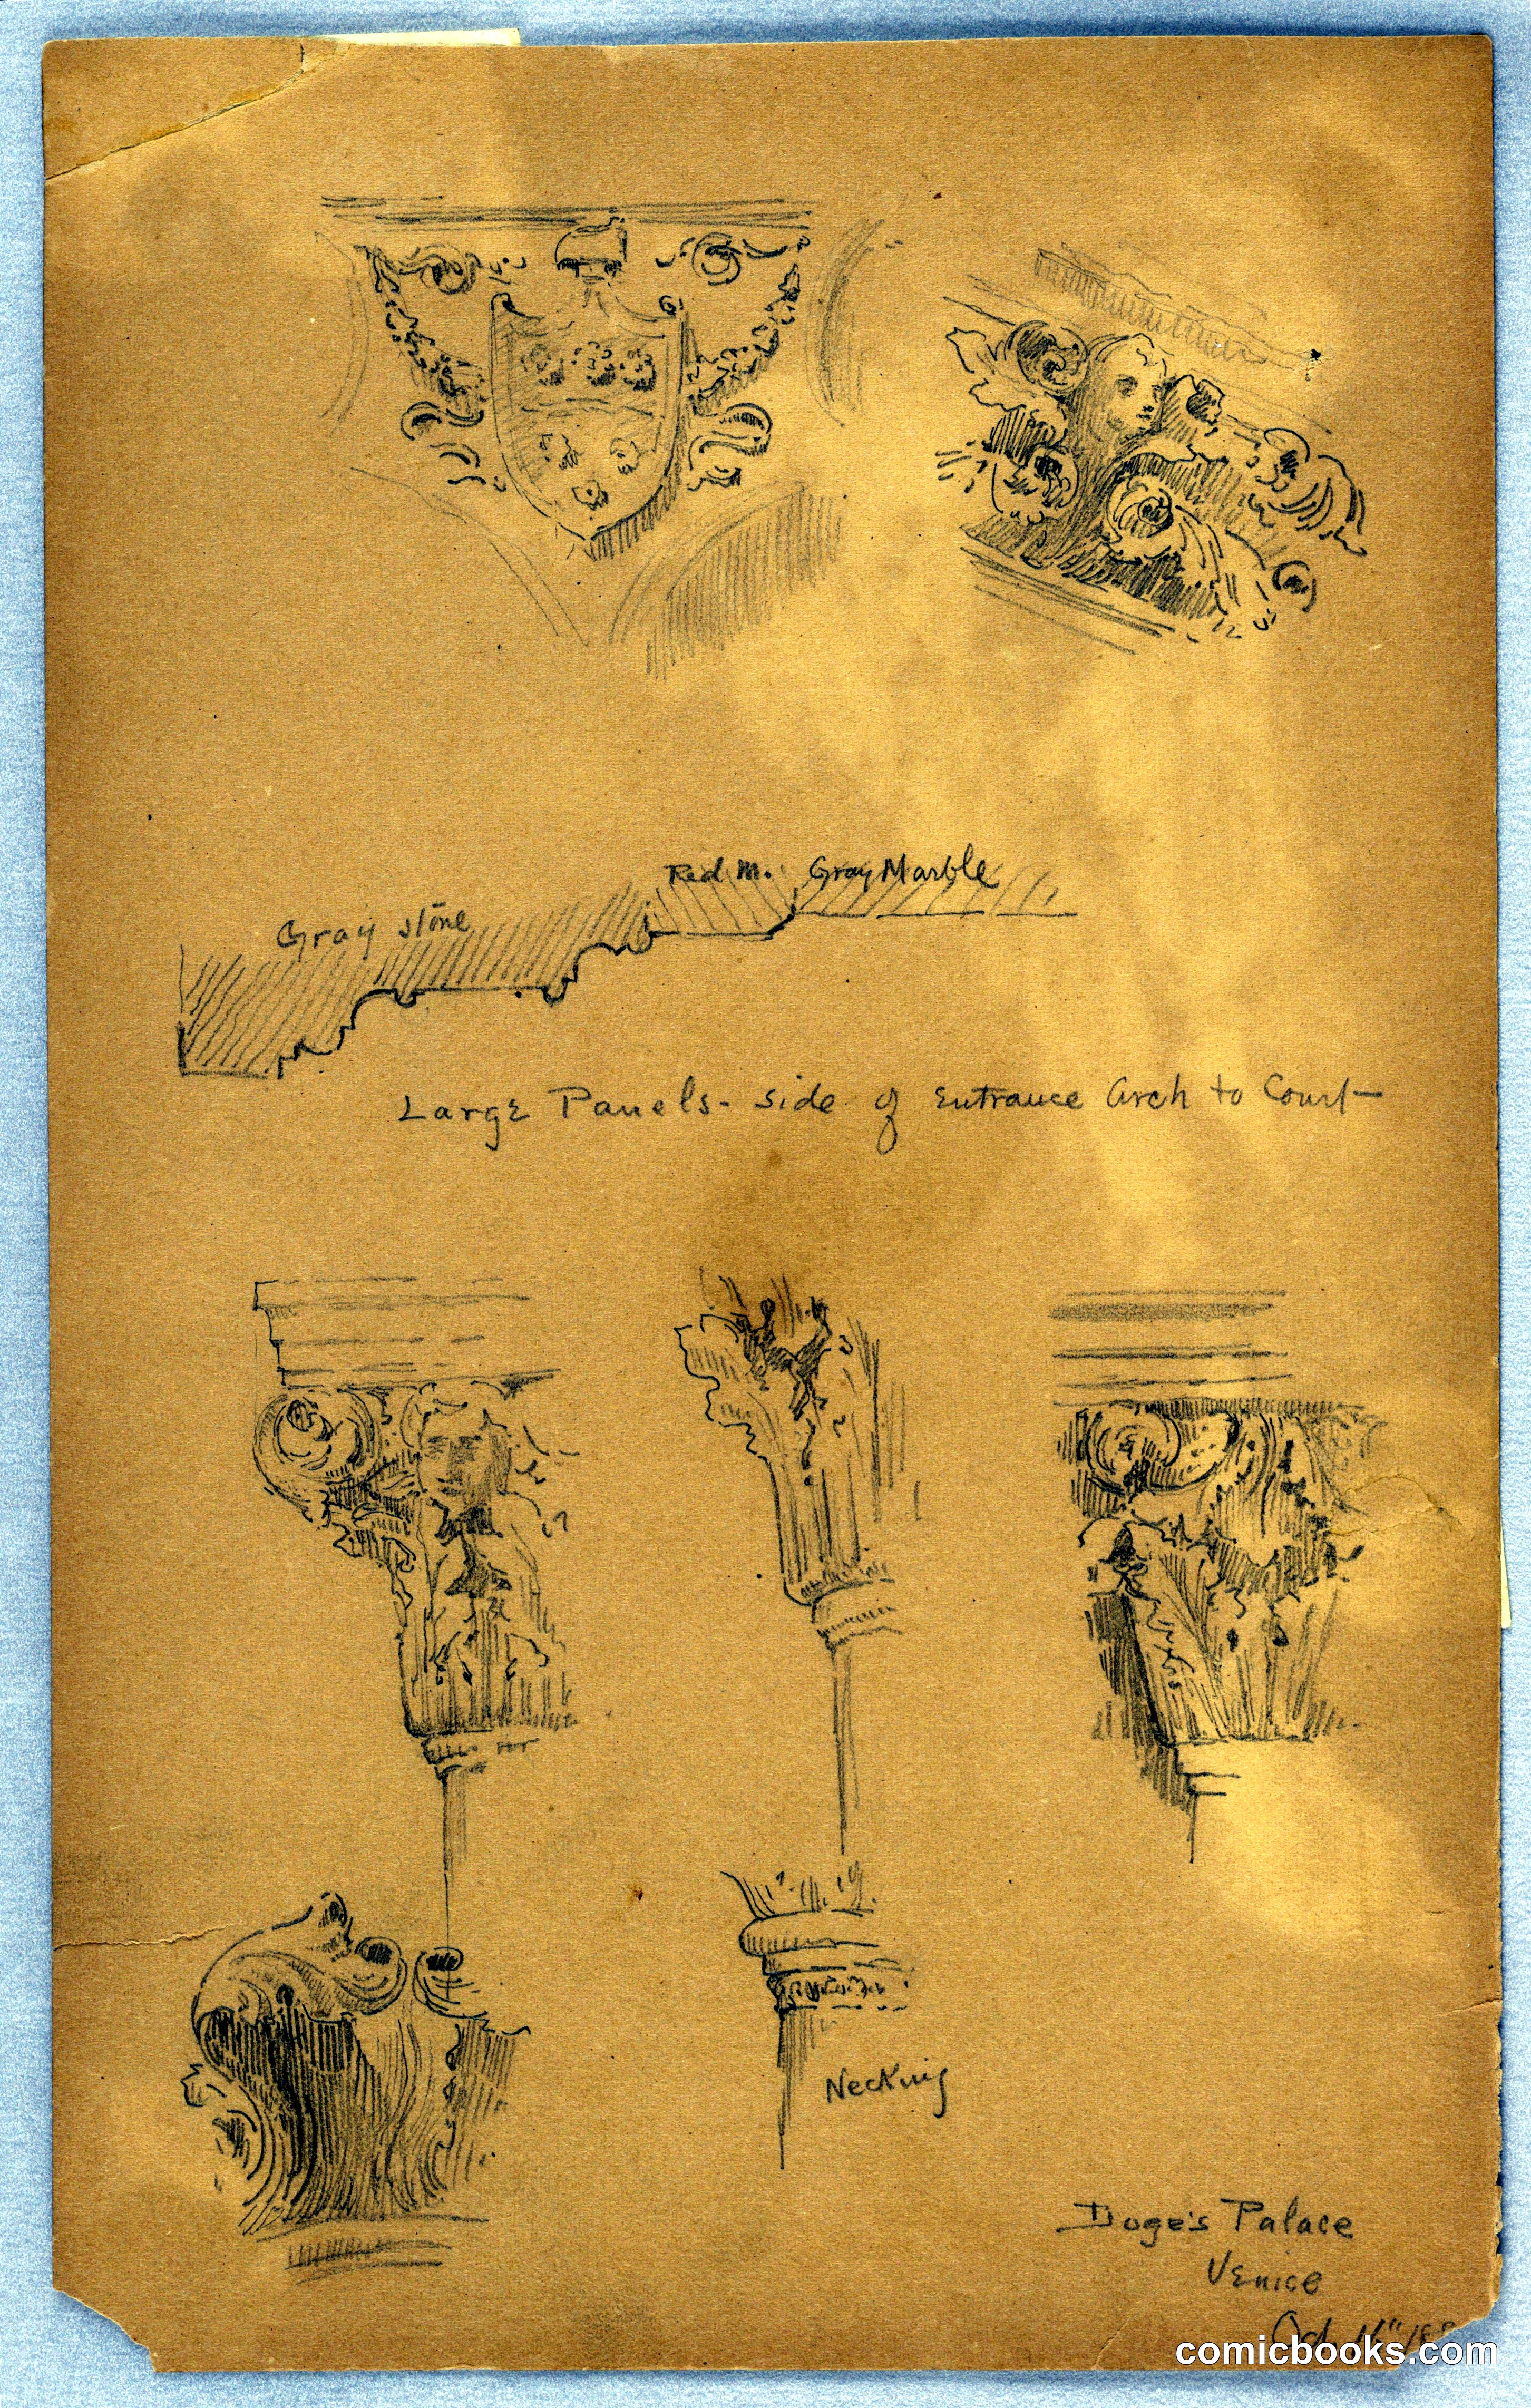 Red M. Gray Marble
Gray stone
Large Panels - side of Entrance Arch to Court
Necking
Doge's Palace
Venice
Oct. 16"
comicbooks.com